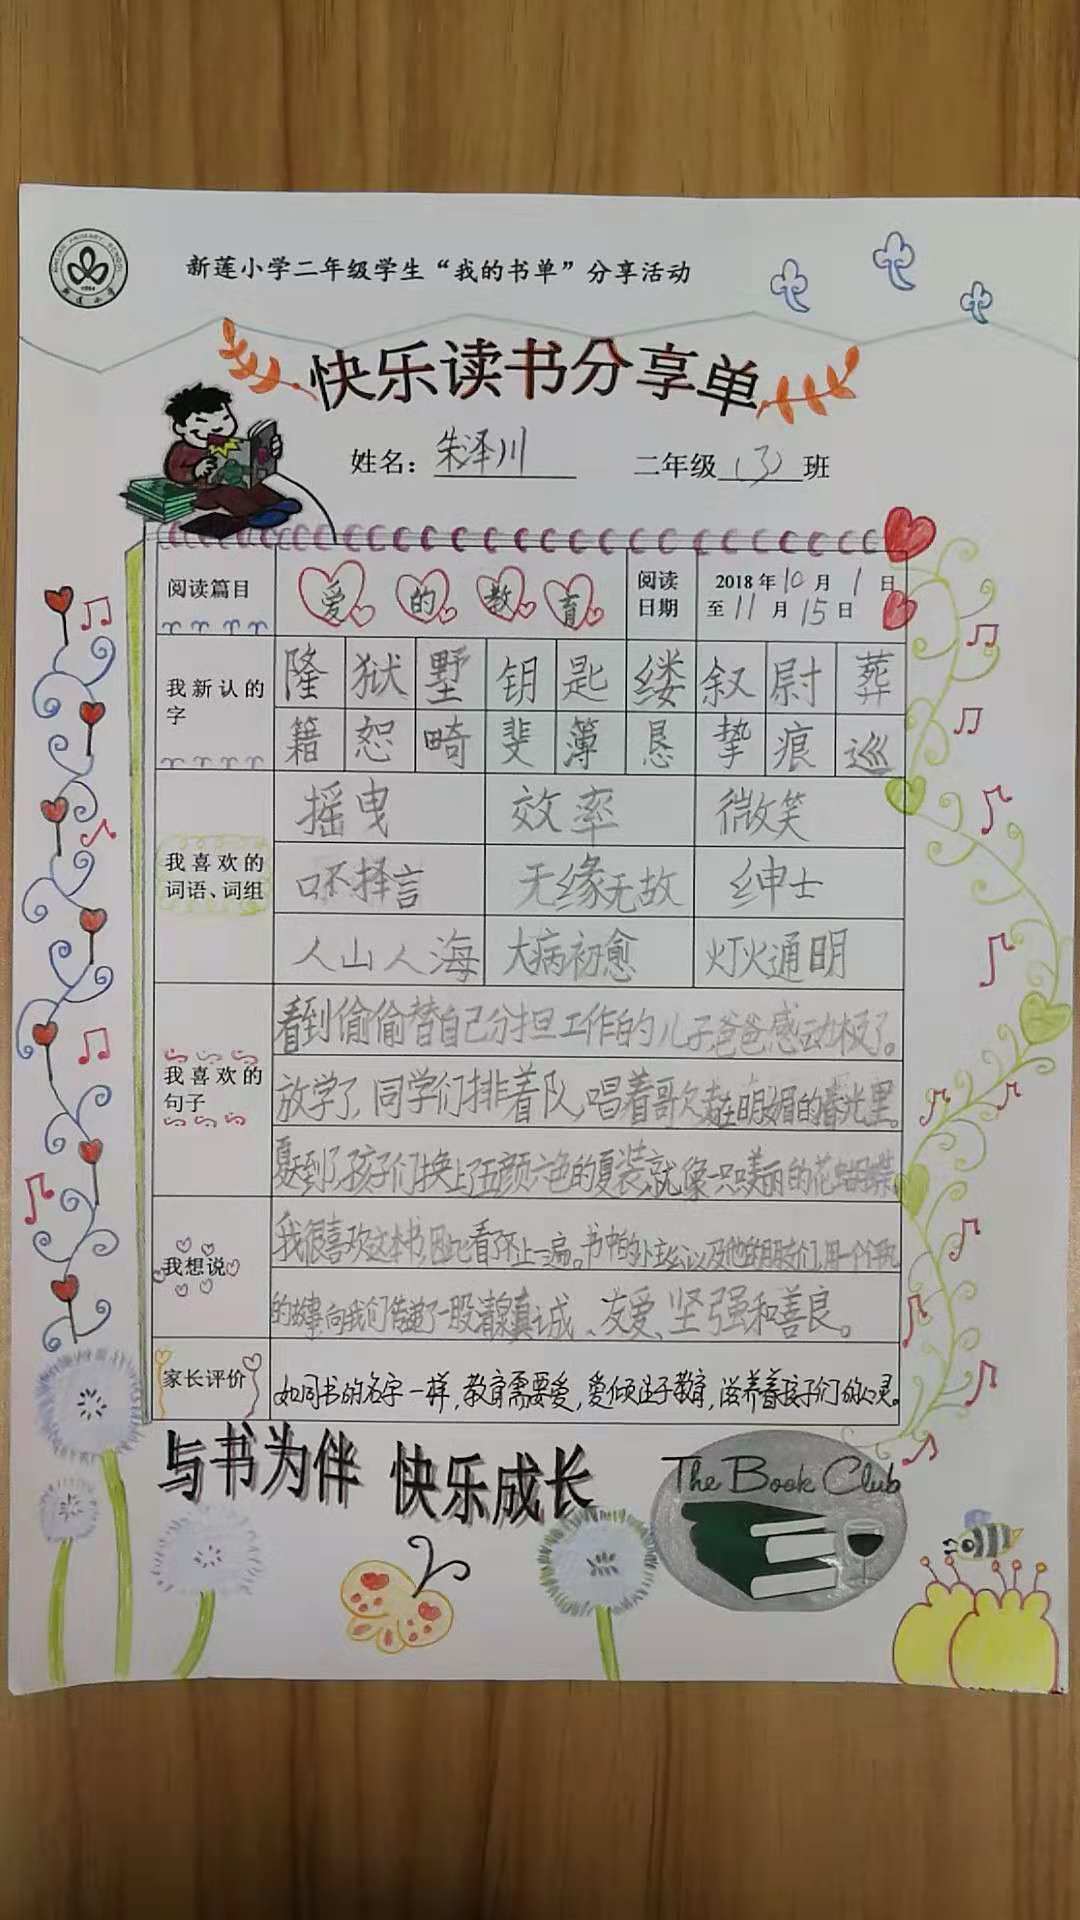 新莲小学二年级学生“我的书单”分享活动
快乐读书分享单
姓名：朱泽川 二年级（3）班
阅读篇目 爱的教育 阅读日期 2018年10月1日至11月15日
我新认的字
隆 狱 墅 钥 匙 缕 叙 尉 葬
籍 恕 畸 斐 薄 恳 挚 痕 巡
我喜欢的词语、词组
摇曳 效率 微笑
口不择言 无缘无故 绅士
人山人海 大病初愈 灯火通明
我喜欢的句子
看到偷偷替自己分担工作的儿子,爸爸感动极了。
放学了,同学们排着队,唱着歌欠走在明媚的春光里。
夏天到了,孩子们换上了五颜六色的夏装,就像一只只美丽的花蝴蝶。
我想说
我很喜欢这本书,因此看了不止一遍。书中的小主人公以及他的朋友们,用一个个
的故事,向我们传递了一股清泉真诚、友爱、坚强和善良。
家长评价 如同书的名字一样,教育需要爱,爱倾注于教育,滋养着孩子们的心灵。
与书为伴 快乐成长
The Book Club